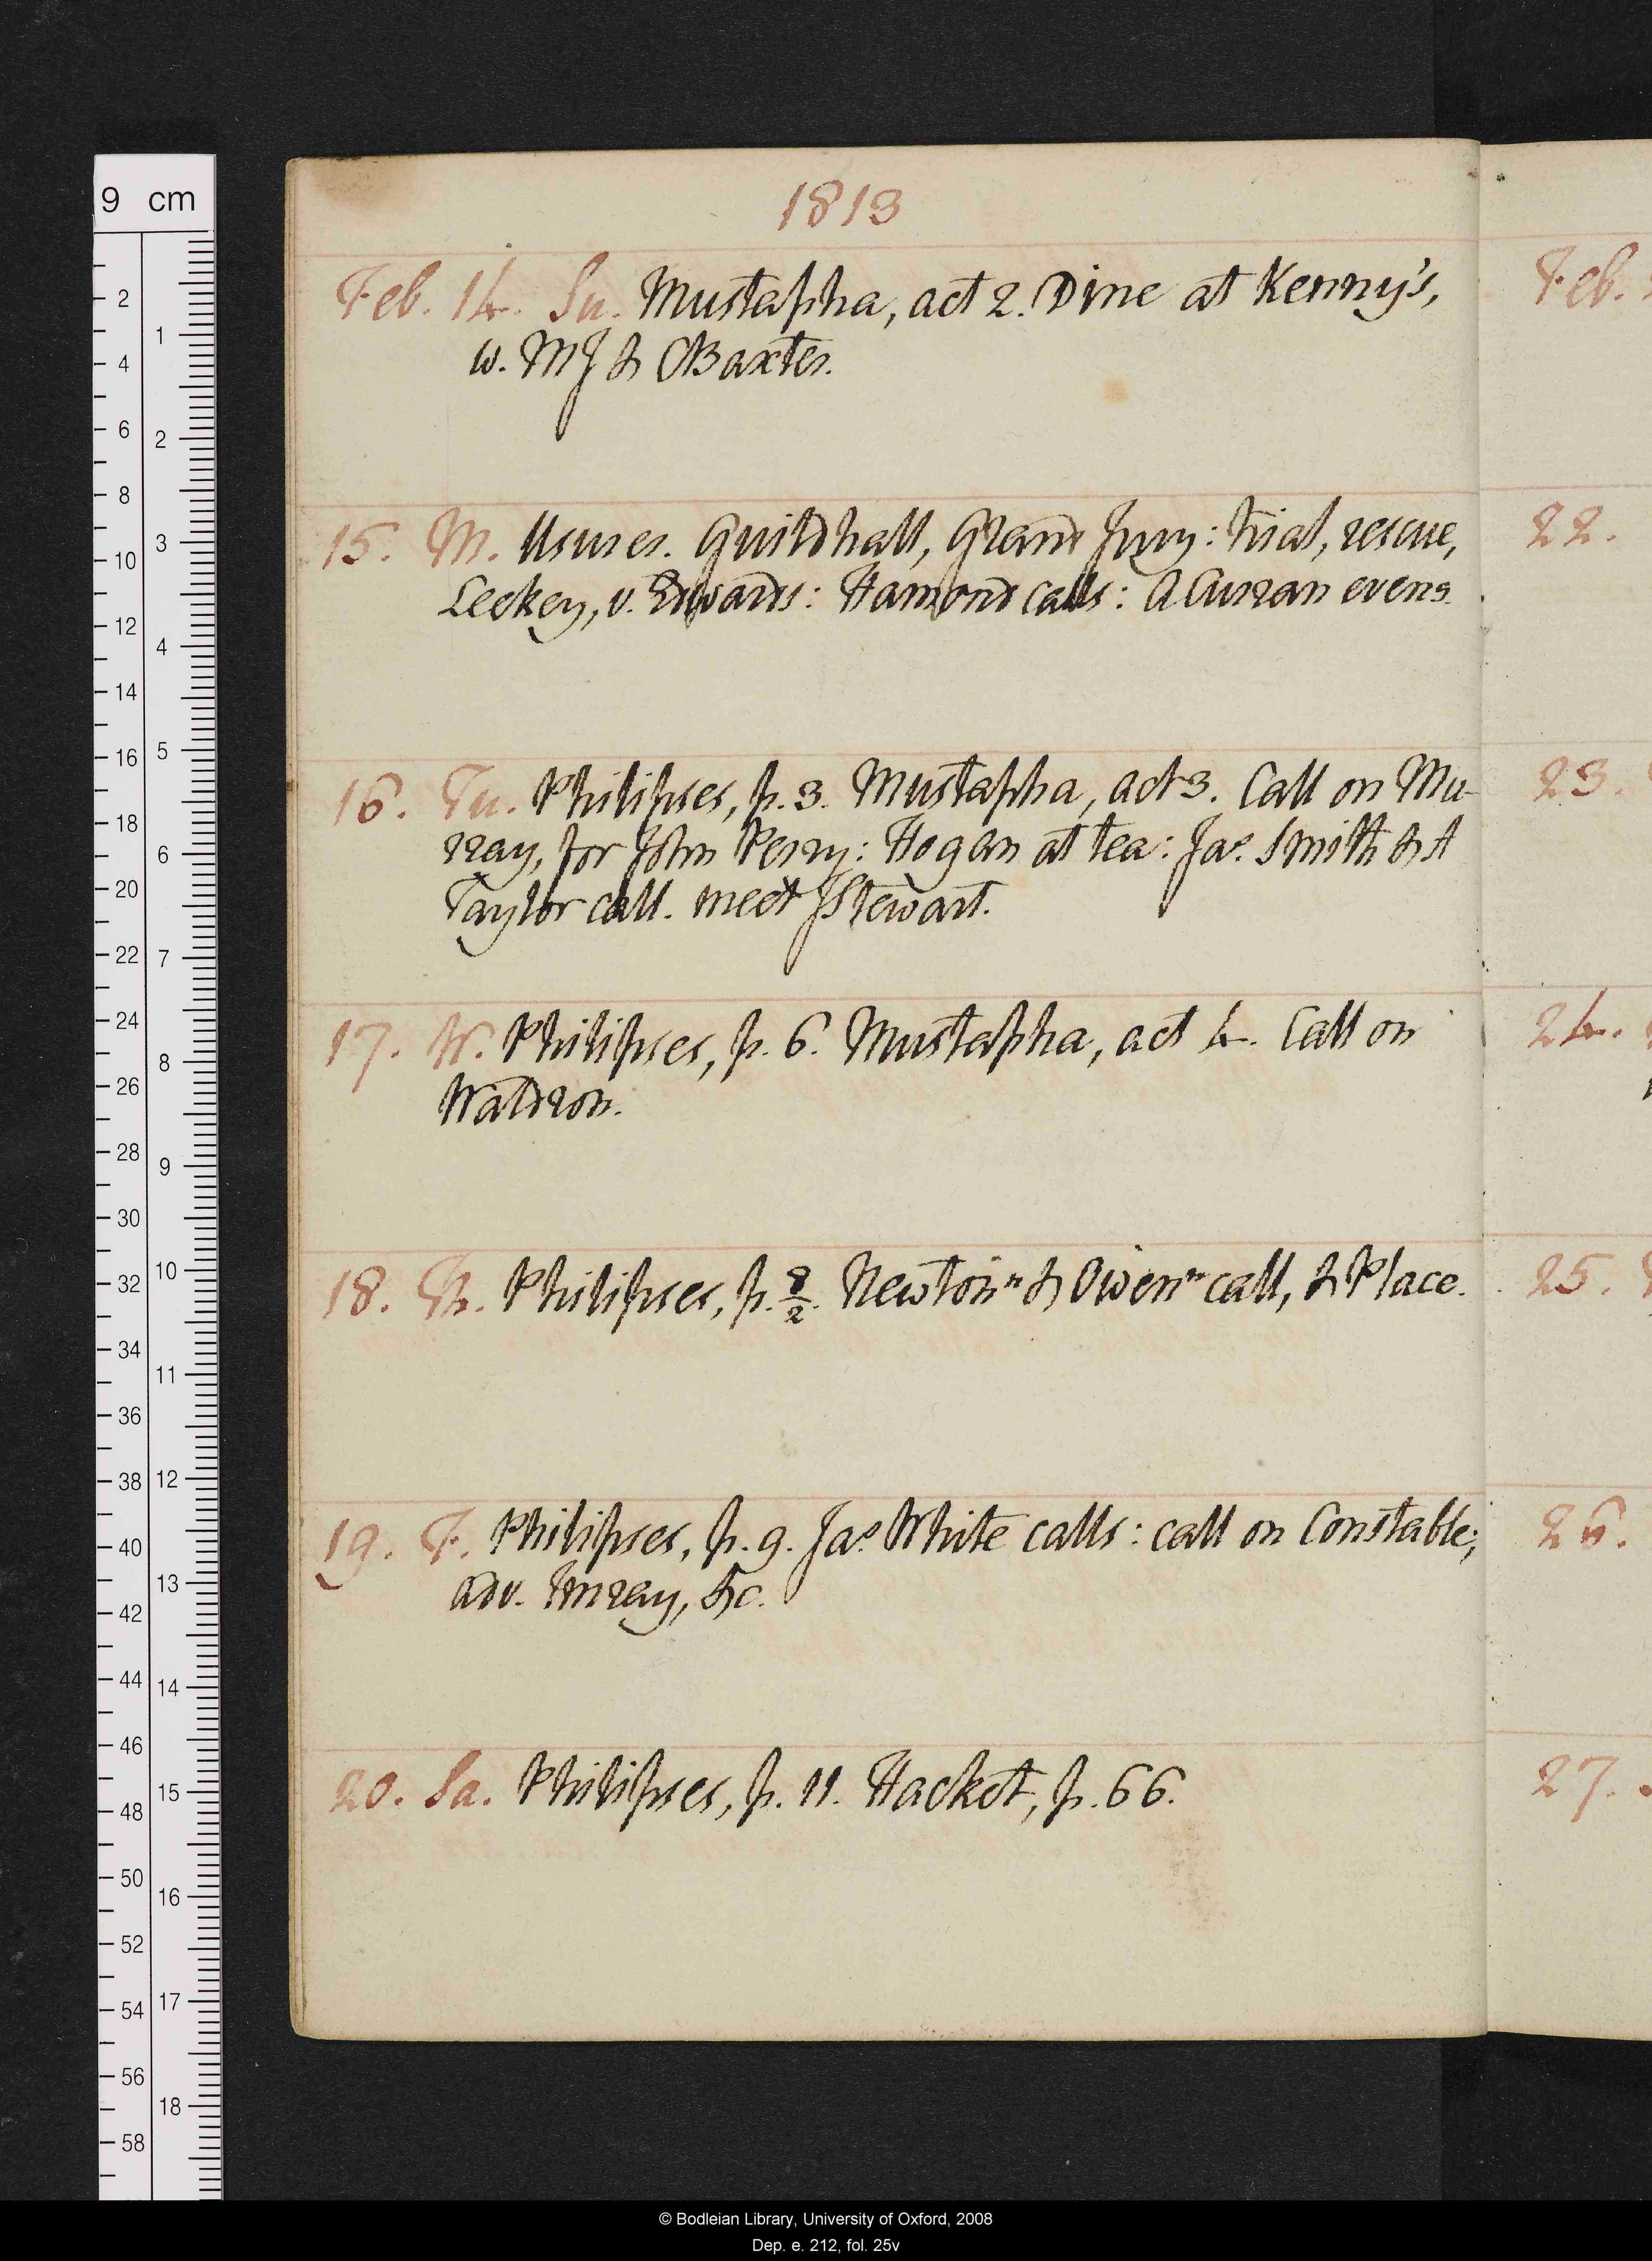 1813
Feb. 14. Su. Mustapha, act 2. Dine at Kenny's,
w. MJ & CBaxter.
15. M. Usurer. Guildhall, Grand Jury: trial, rescue,
Leckey, v. Edwards: Hamond calls: A Curran evens.
16. Tu. Philipses, p. 3. Mustapha, act 3. Call on Mu-
rray, for John Perry: Hogan at tea: Jas. Smith & A
Taylor call. meet JStewart.
17. W. Philipses, p. 6. Mustapha, act 4. Call on
Waldron.
18. Th. Philipses, p. 8/2. Newton n & Owen n call, & Place.
19. F. Philipses, p. 9. Jas. White calls: call on Constable;
adv. Imray, &c.
20. Sa. Philipses, p. 11. Hacket, p. 66.
Feb.
22.
23.
24.
25.
26.
27.
9 cm
2
4
6
8
10
12
14
16
18
20
22
24
26
28
30
32
34
36
38
40
42
44
46
48
50
52
54
56
58
1
2
3
4
5
6
7
8
9
10
11
12
13
14
15
16
17
18
© Bodleian Library, University of Oxford, 2008
Dep. e. 212, fol. 25v